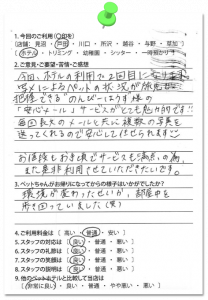 1.今回のご利用(〇印を)
(店舗: 見沼・戸田・川口・所沢・越谷・与野・草加)
(ホテル・トリミング・幼稚園・シッター・一時預かり)
2.ご意見・ご要望・苦情・ご感想
今回、ホテルの利用で2回目になります。
写メによるペットの状況が旅先でも
把握できる"のんびーにょうす様の
"安心メール"サービスがとても魅力的です!!
毎回長文のメールと共に複数の写真を
送ってくれるので安心して任せられます。
お値段もお手頃でサービスも満点の為、
また是非利用させていただきたいです。
3.ペットちゃんがお帰りになってからの様子はいかがでしたか?
環境が変わったせいか、部屋中を
歩き回っていました(笑)
4.ご利用料金は(高い・普通・安い)
5.スタッフの対応は(良い・普通・悪い)
6.スタッフの礼節は(良い・普通・悪い)
7.スタッフの笑顔は(良い・普通・悪い)
8.スタッフの説明は(良い・普通・悪い)
9.他のペットホテルと比較して当店は
(非常に良い・良い・普通・やや悪い・悪い)